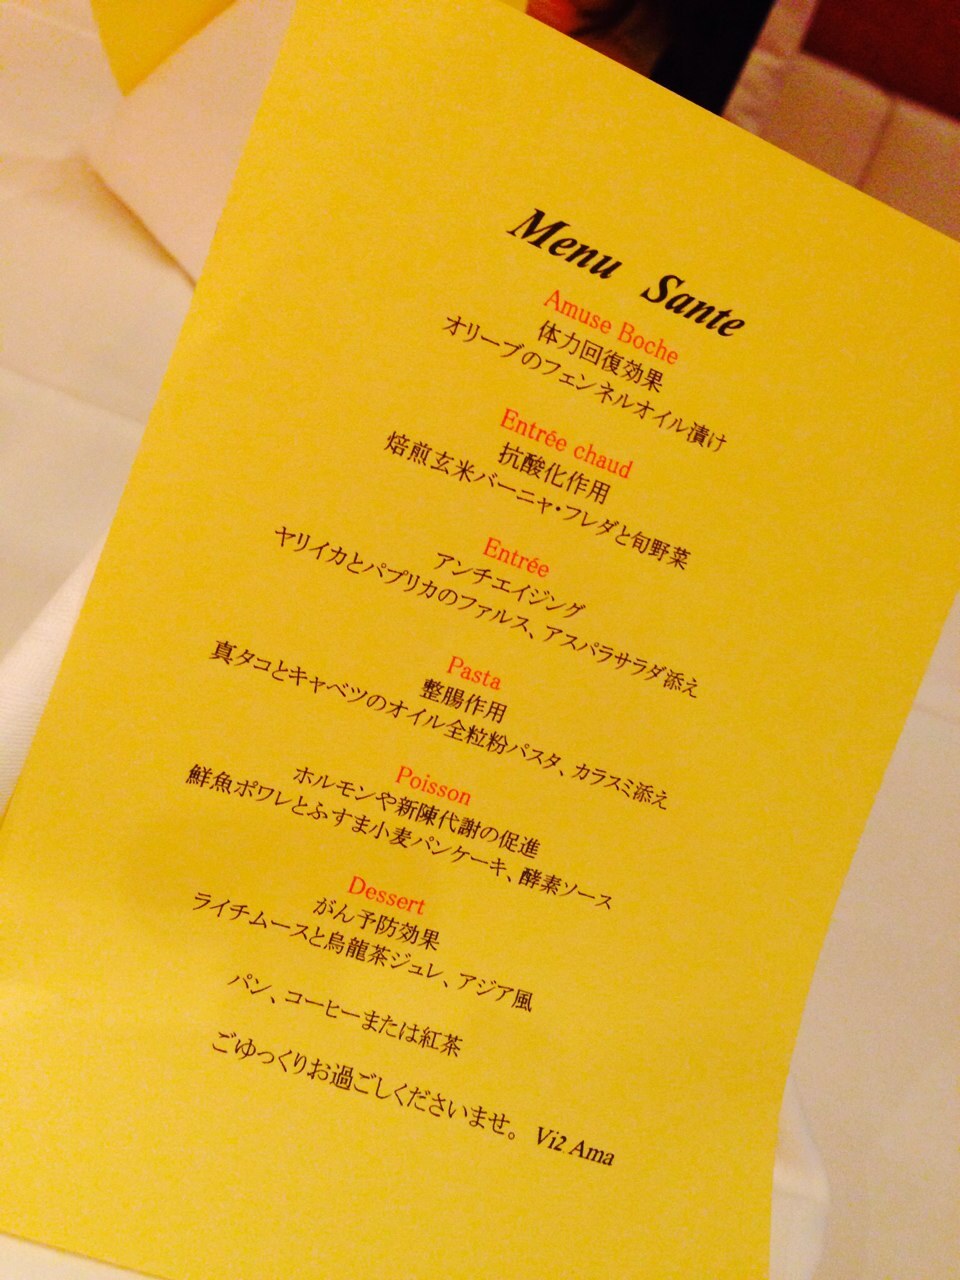 Menu Sante
Amuse Boche
体力回復効果
オリーブのフェンネルオイル漬け
Entrée chaud
抗酸化作用
焙煎玄米バーニャ・フレダと旬野菜
Entrée
アンチエイジング
ヤリイカとパプリカのファルス、アスパラサラダ添え
Pasta
整腸作用
真タコとキャベツのオイル全粒粉パスタ、カラスミ添え
Poisson
ホルモンや新陳代謝の促進
鮮魚ポワレとふすま小麦パンケーキ、酵素ソース
Dessert
がん予防効果
ライチムースと烏龍茶ジュレ、アジア風
パン、コーヒーまたは紅茶
ごゆっくりお過ごしくださいませ。 Vi2 Ama